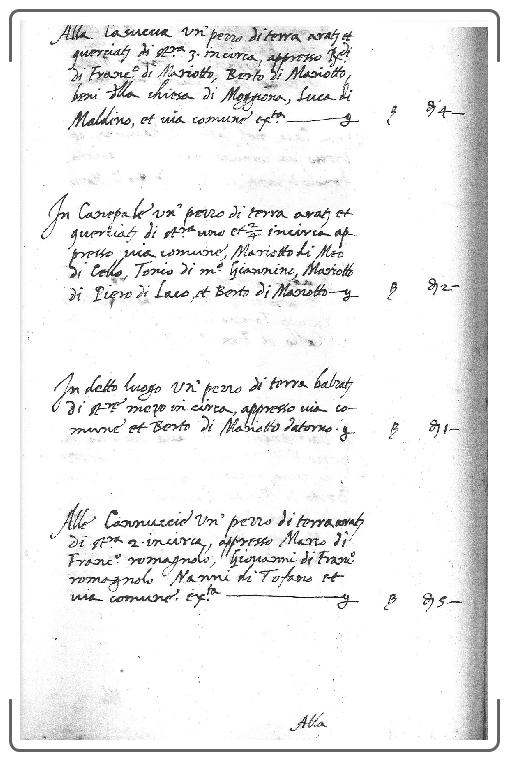 Alla Casuccia Un° pezzo di terra arat: et
querciat: di st.ra 3. incirca, appresso
di Franc.° di Mariotto, Berto di Mariotto,
beni della chiesa di Moggiona, Luca di
Maldino, et via comune ex.ta — y β đ 4 —
In Canepale un° pezzo di terra arat: et
querciat: di st.ra uno et 2/4 incirca ap-
presso via comune, Mariotto di Meo
di Cello, Tonio di m.° Giannino, Mariotto
di Piero di Laco, et Berto di Mariotto — y β đ 2 —
In detto luogo Un° pezzo di terra balzat:
di st.re mezo in circa, appresso via co-
mune et Berto di Mariotto datorno. y β đ 1 —
Alle Cannuccie Un° pezzo di terra arat:
di st.ra 2. incirca, appresso Marco di
Franc.° romagnolo, Giovanni di Franc.°
romagnolo Nanni di Tofano et
via comune. ex.ta — y β đ 5 —
Alla